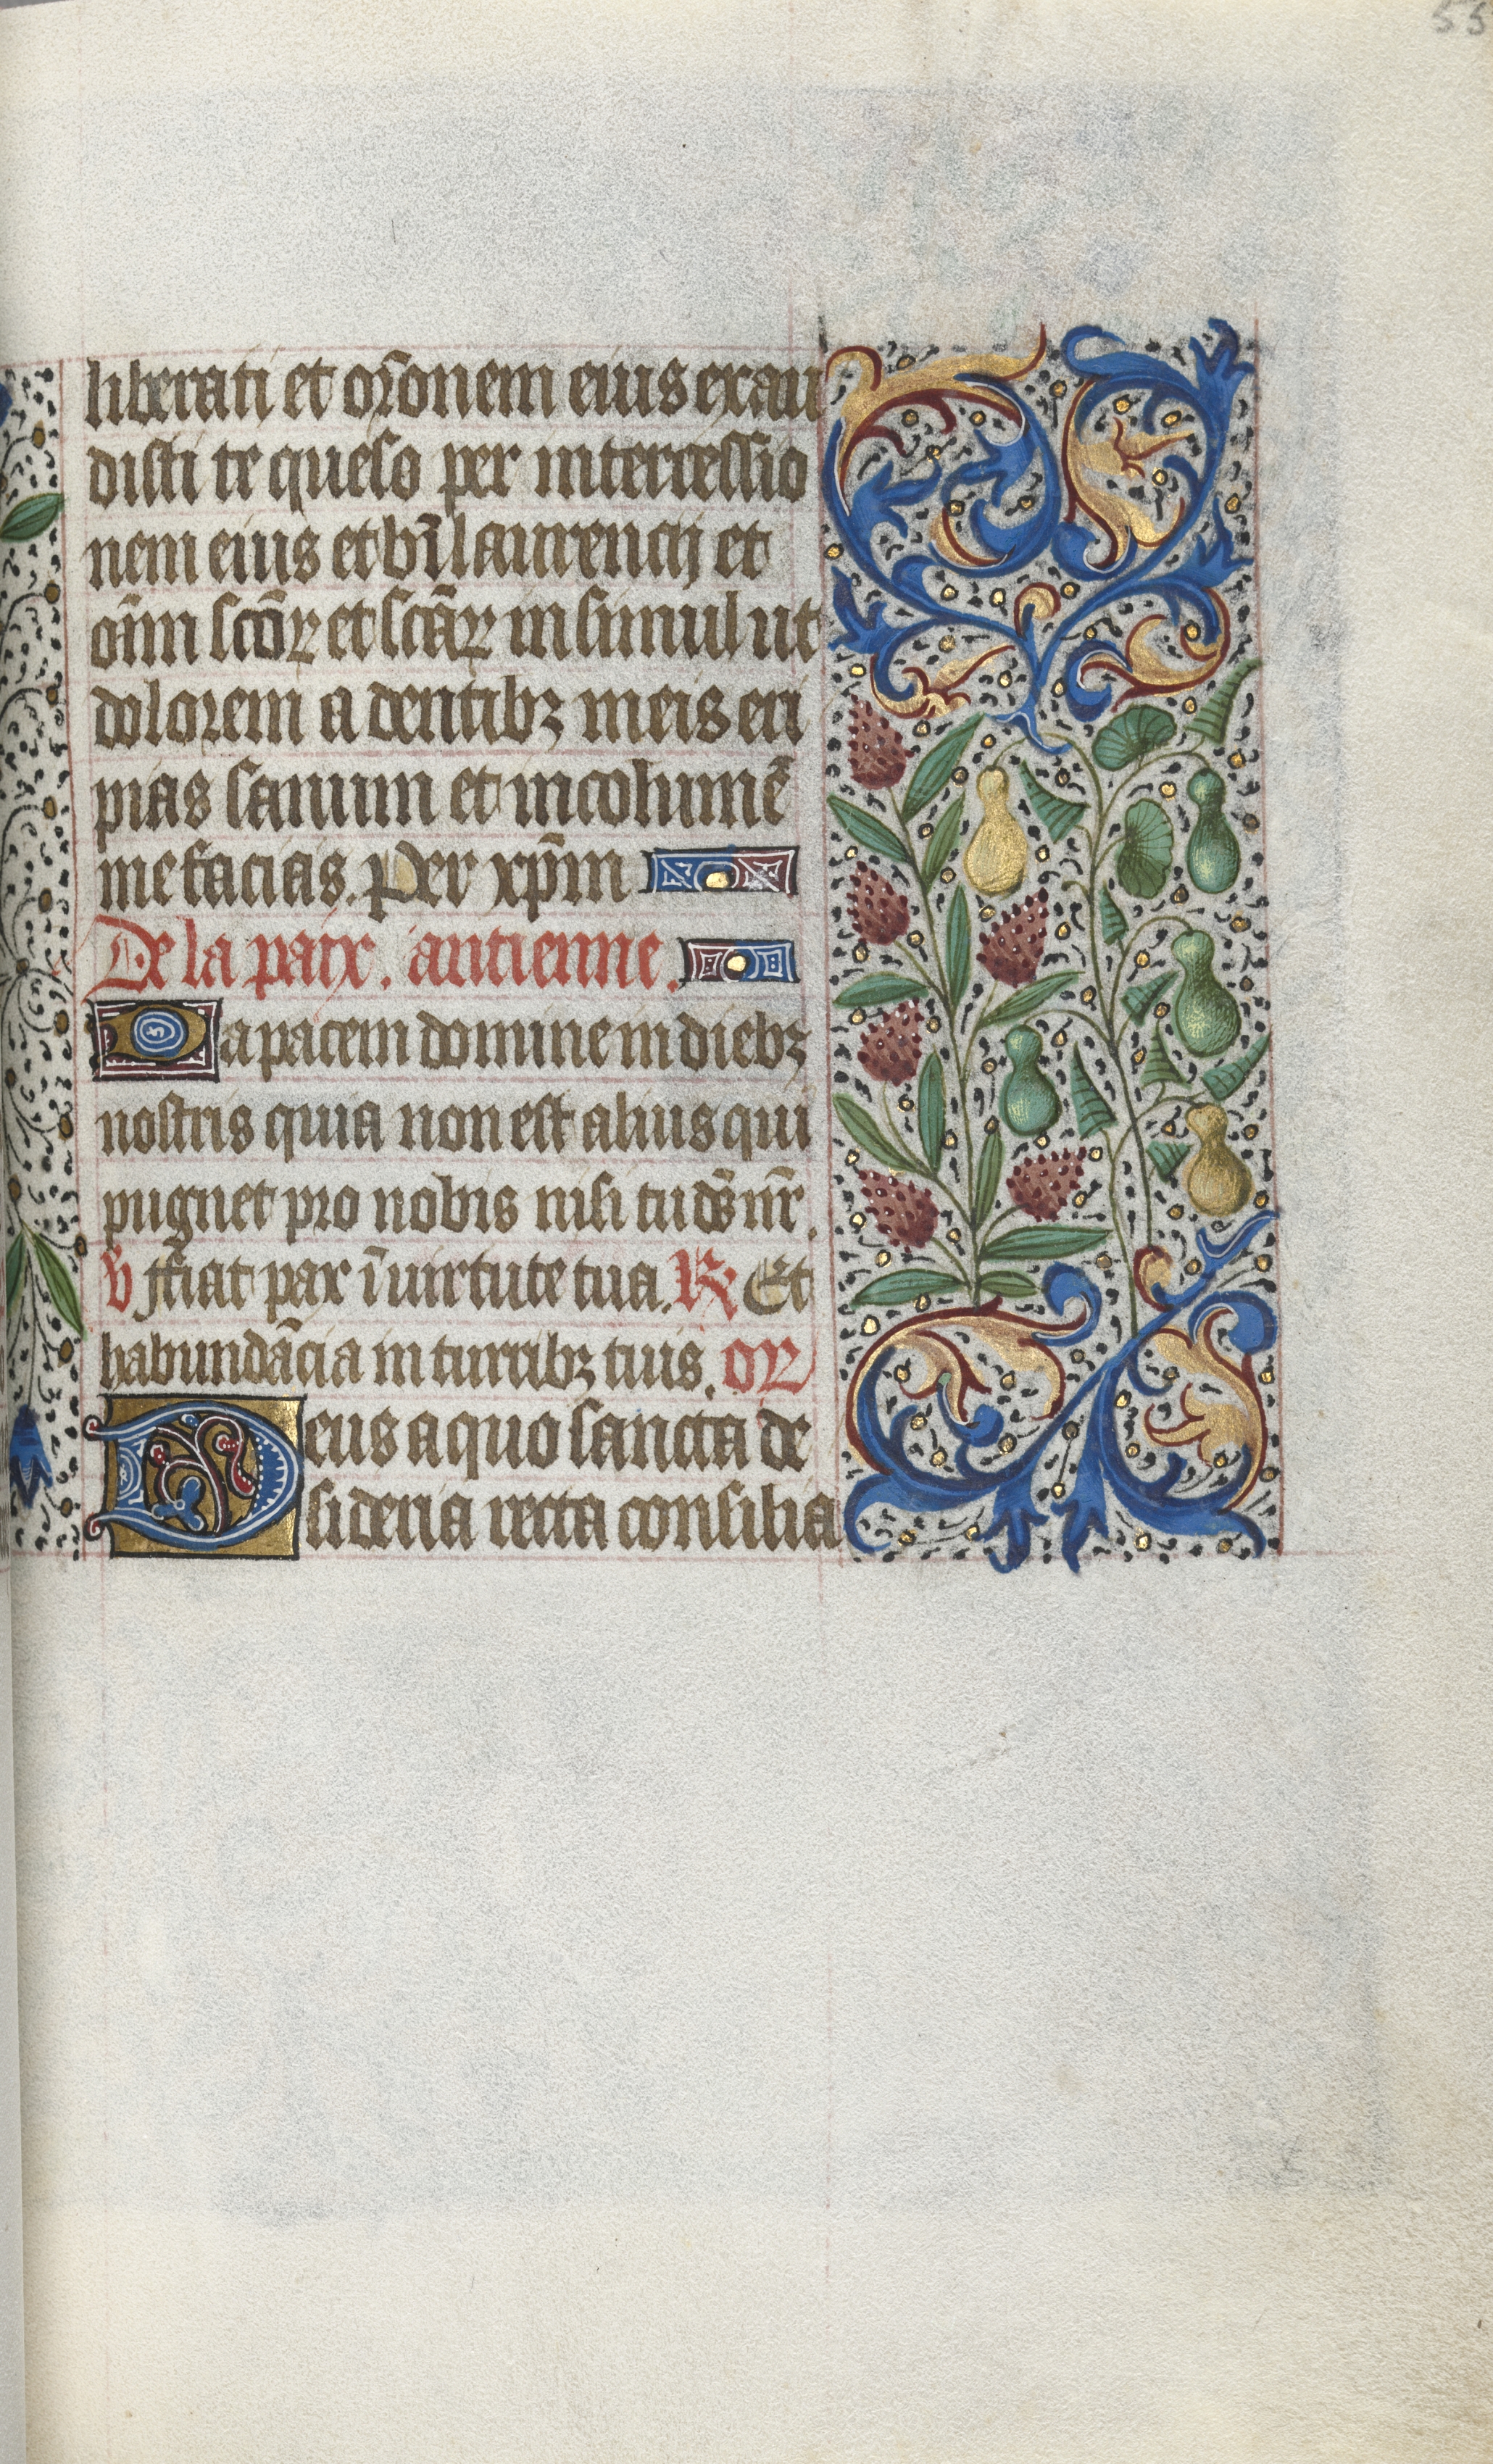 55
liberati et or̃onem eius exau
disti te queso per intercessio
nem eius et bt̃i laurencij et
oĩm sc̃oꝝ et sc̃aꝝ in simul ut
dolorem a dentibꝫ meis eri
pias sanum et incolumẽ
me facias. Per xp̃m
De la paix. antienne.
Da pacem domine in diebꝫ
nostris quia non est alius qui
pugnet pro nobis nisi tu ds̃ nr̃.
℣ ffiat pax ĩ uirtute tua. ℟ Et
habundãcia in turribꝫ tuis. oꝝ
Deus a quo sancta de
sideria recta consilia